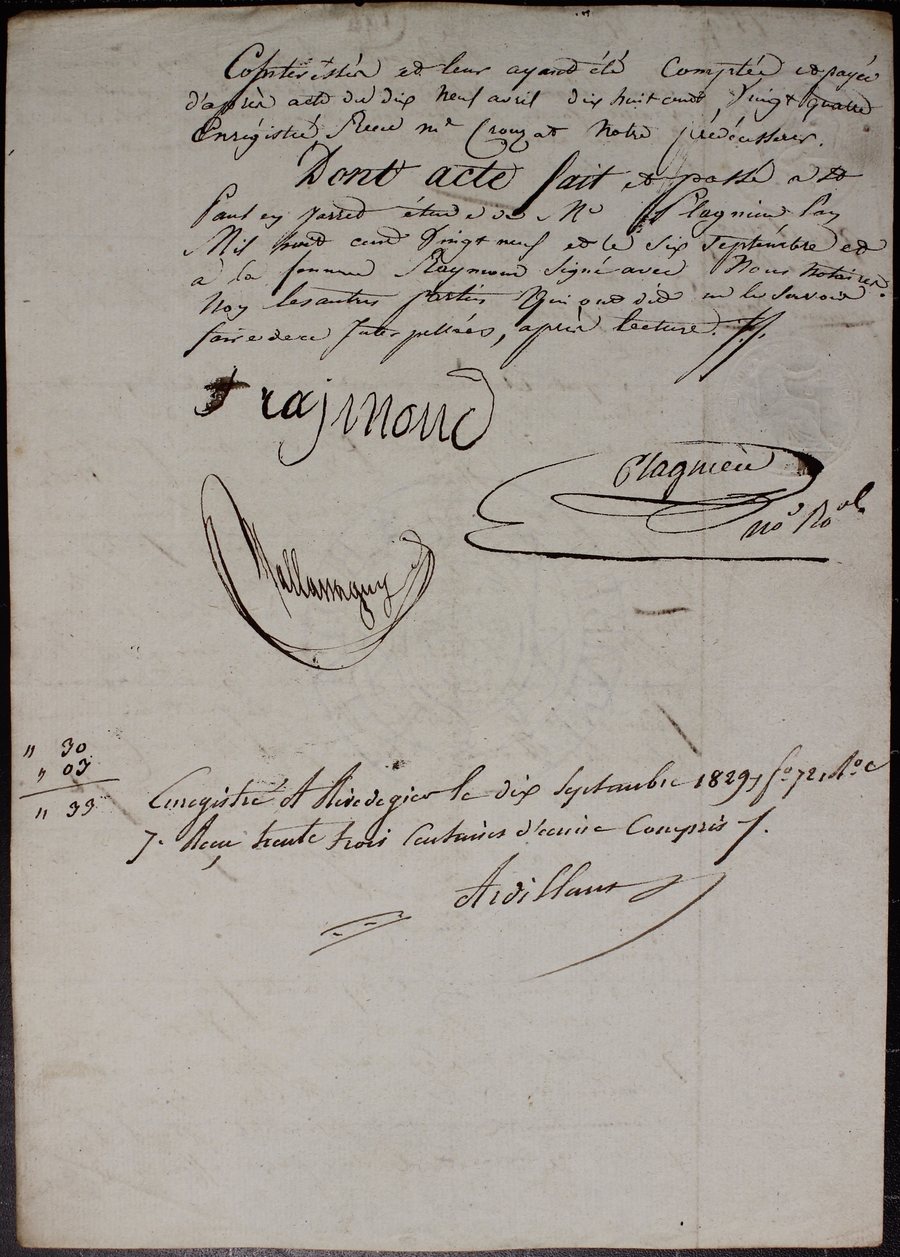 et leur ayant été Comptée et payée
d'après acte du dix neuf avril dix huit cent Vingt quatre
Enrégistré Recu me Crouzat Notre prédécesseur.
Dont acte fait et passé a St
Paul en Jarret étude de Me Plagnieu l'an
Mil huit cent Vingt neuf et le six Septembre et
a la femme Raymond signé avec Nous notaires.
Non les autres parties Qui ont dit ne le Savoir
faire de ce Interpellées, après lecture.
raymond
Plagnieu
nore Royal
" 30
" 03
" 33
Enregistré A Rivedegier le dix Septembre 1829, fo 72, Ro C
7. Recu trente trois Centimes d'ecime Compris
Ardillans